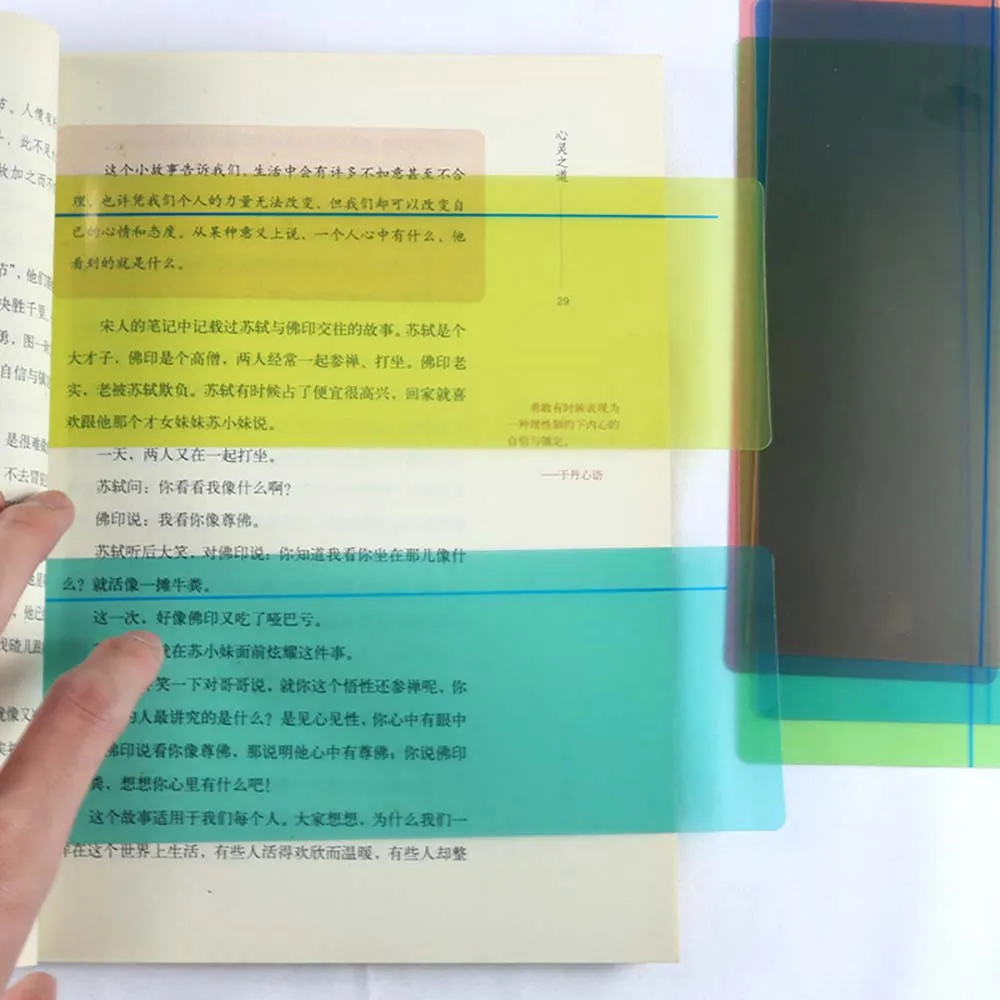 节、人情有
此不足
故加之而不
节”，他们
决胜千里
勇，图一时
自信与镇定
是很难
不去冒犯
他已
找碴儿跟
就像又
心灵之道
29
这个小故事告诉我们，生活中会有许多不如意甚至不合
理，也许凭我们个人的力量无法改变，但我们却可以改变自
己的心情和态度。从某种意义上说，一个人心中有什么，他
看到的就是什么。
宋人的笔记中记载过苏轼与佛印交往的故事。苏轼是个
大才子，佛印是个高僧，两人经常一起参禅、打坐。佛印老
实，老被苏轼欺负。苏轼有时候占了便宜很高兴，回家就喜
欢跟他那个才女妹妹苏小妹说。
一天，两人又在一起打坐。
苏轼问：你看看我像什么啊？
佛印说：我看你像尊佛。
苏轼听后大笑，对佛印说：你知道我看你坐在那儿像什
么？就活像一摊牛粪。
这一次，好像佛印又吃了哑巴亏。
在苏小妹面前炫耀这件事。
笑一下对哥哥说，就你这个悟性还参禅呢，你
的人最讲究的是什么？是见心见性，你心中有眼中
佛印说看你像尊佛，那说明他心中有尊佛；你说佛印
粪，想想你心里有什么吧！
这个故事适用于我们每个人。大家想想，为什么我们一
在这个世界上生活，有些人活得欢欣而温暖，有些人却整
勇敢有时候表现为
一种理性制约下内心的
自信与镇定。
——于丹心语